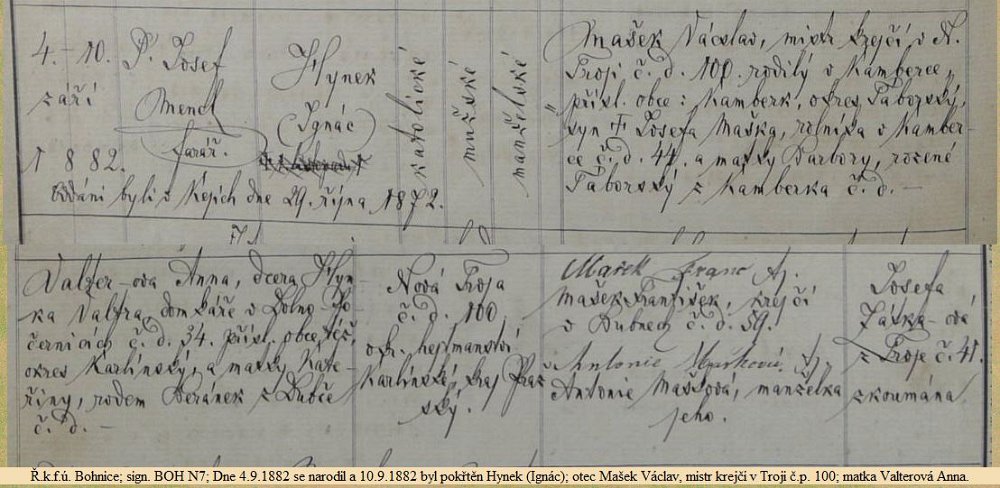 4.–10.
září
1882.
P. Josef
Mencl
farář.
Hynek
(Ignác)
katolické
mužské
manželské
Mašek Václav, mistr krejčí v N.
Troji č. d. 100. rodilý v Kamberce,
přísl. obce: Kamberk, okres Táborský,
syn † Josefa Maška, rolníka v Kamber-
ce č. d. 44. a matky Barbory, rozené
Táborský z Kamberka č. d. –
Oddáni byli v Kejích dne 29. října 1872.
Valter-ova Anna, dcera Hyn-
ka Valtra, domkáře v Dolno-Po-
černicích č. d. 34. přísl. obce též,
okres Karlínský, a matky Kate-
řiny, rodem Beránek z Dubče
č. d. –
Nová Troja
č. d. 100
okr. hejtmanství
Karlínské, kraj Praž-
ský.
Mašek Franc
Mašek František, krejčí
v Bubnech č. d. 59.
Antonie Mašková
Antonie Mašková, manželka
jeho.
Josefa
Záska-ová
z Troje č. 41.
zkoumána.
Ř.k.f.ú. Bohnice; sign. BOH N7; Dne 4.9.1882 se narodil a 10.9.1882 byl pokřtěn Hynek (Ignác); otec Mašek Václav, mistr krejčí v Troji č.p. 100; matka Valterová Anna.